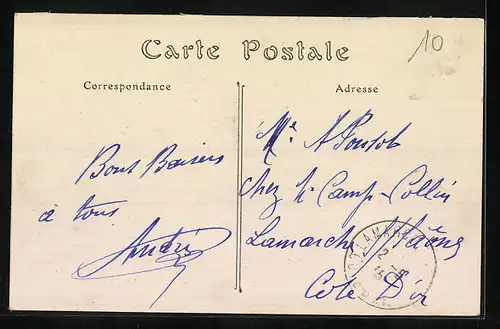 Carte Postale
10
Correspondance
Adresse
Bons Baisers
à tous
André
A
chez Mr Camp-Collin
Lamarche s/Saône
Côte D'or
LAMARCHE
2 -8